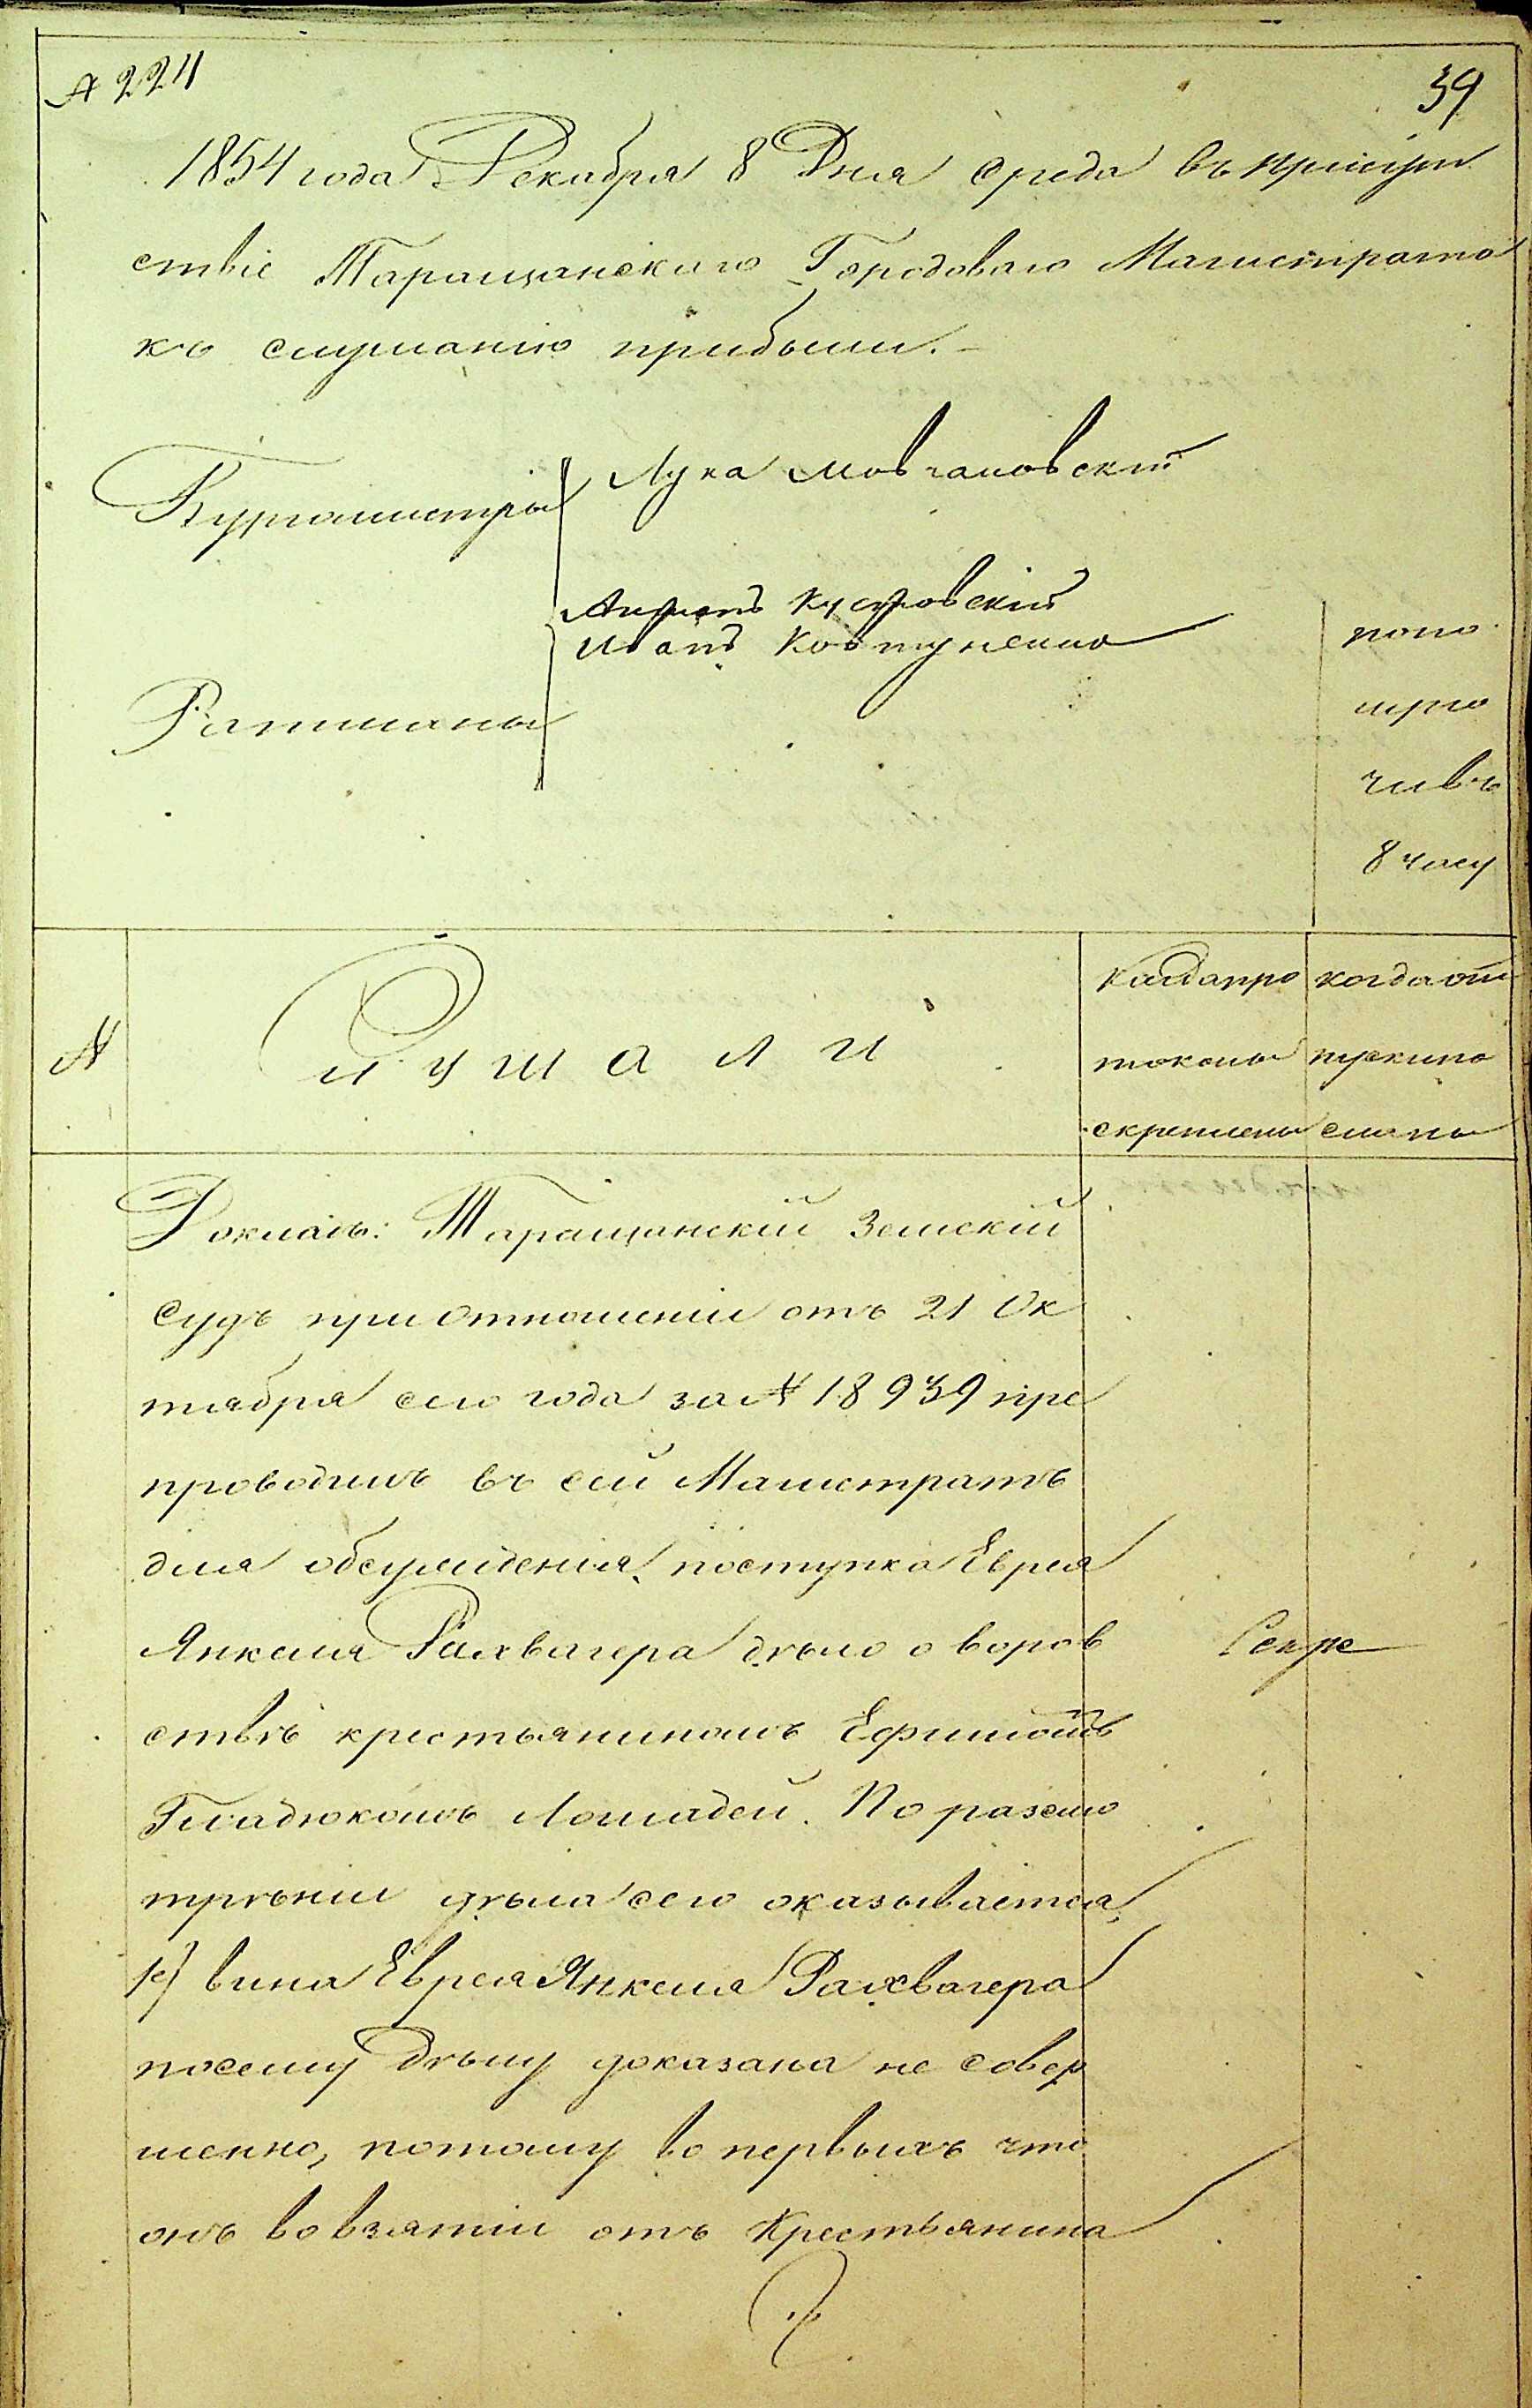 № 224
39
1854 года Декабря 8 Дня среда въ присут
ствіе Таращанскаго Городоваго Магистрата
къ слушанію прибыли.
Бургомистры
Лука Мовчановскій
Иванъ Ковтуненко
Ратманы
попо
луно
чивъ
8 часу
№
Слушали
Когда про
токолы
скреплены
когда от
пускипо
сланы
Докладъ: Таращанскій Земскій
Судъ при отношеніи отъ 21 Ок
тября сего года за № 18939 пре
проводилъ въ сей Магистратъ
для обсужденія поступка Еврея
Янкеля Рахвагера дѣло о воров
ствѣ крестьяниномъ Ефимомъ
Гладюкомъ Лошадей. По разсмо
трѣніи дѣла сего оказывается,
1е) вина Еврея Янкеля Рахвагера
посему Дѣлу доказана не совер
шенно, потому во первыхъ что
онъ во взятіи отъ Крестьянина
Секре